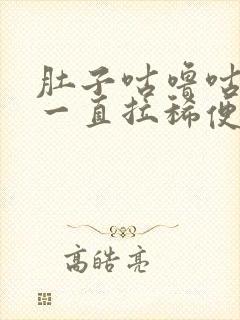 肚子咕噜咕
一直拉稀便
高皓亮